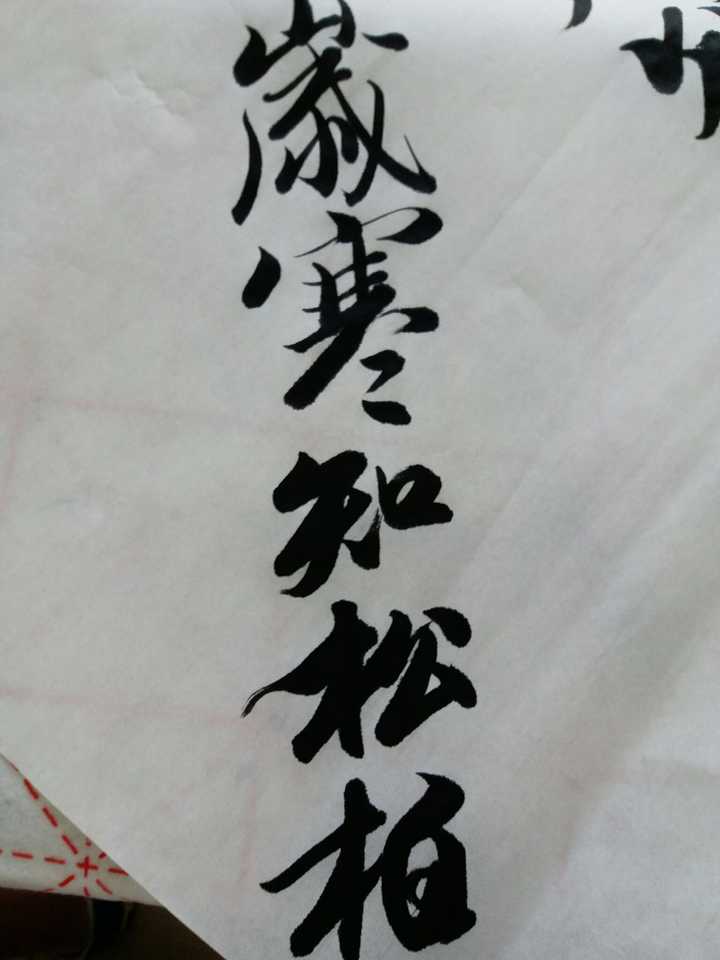 歲寒知松柏